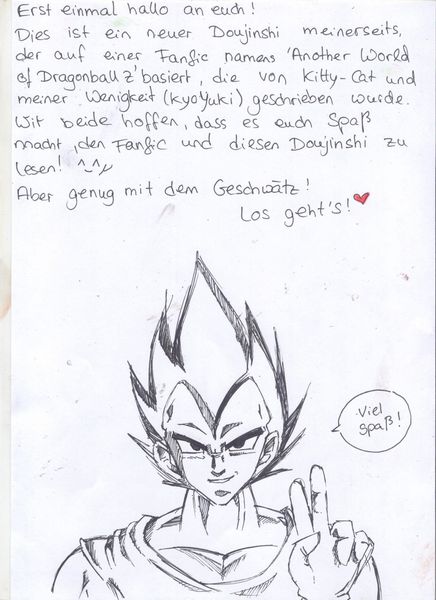 Erst einmal hallo an euch!
Dies ist ein neuer Doujinshi meinerseits,
der auf einer Fanfic namens 'Another World
of Dragonball Z' basiert, die von Kitty-Cat und
meiner Wenigkeit (KyoYuki) geschrieben wurde.
Wir beide hoffen, dass es euch Spaß
macht, den Fanfic und diesen Doujinshi zu
lesen! ^_^
Aber genug mit dem Geschwätz!
Los geht's! ♥
Viel
spaß!